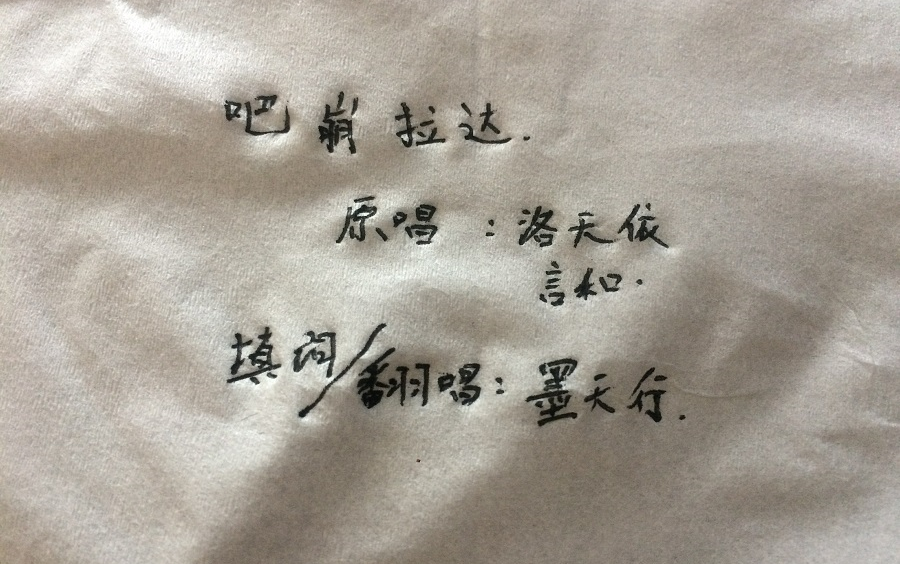 吧崩拉达.
原唱:洛天依
言和.
填词/翻唱:墨天行.